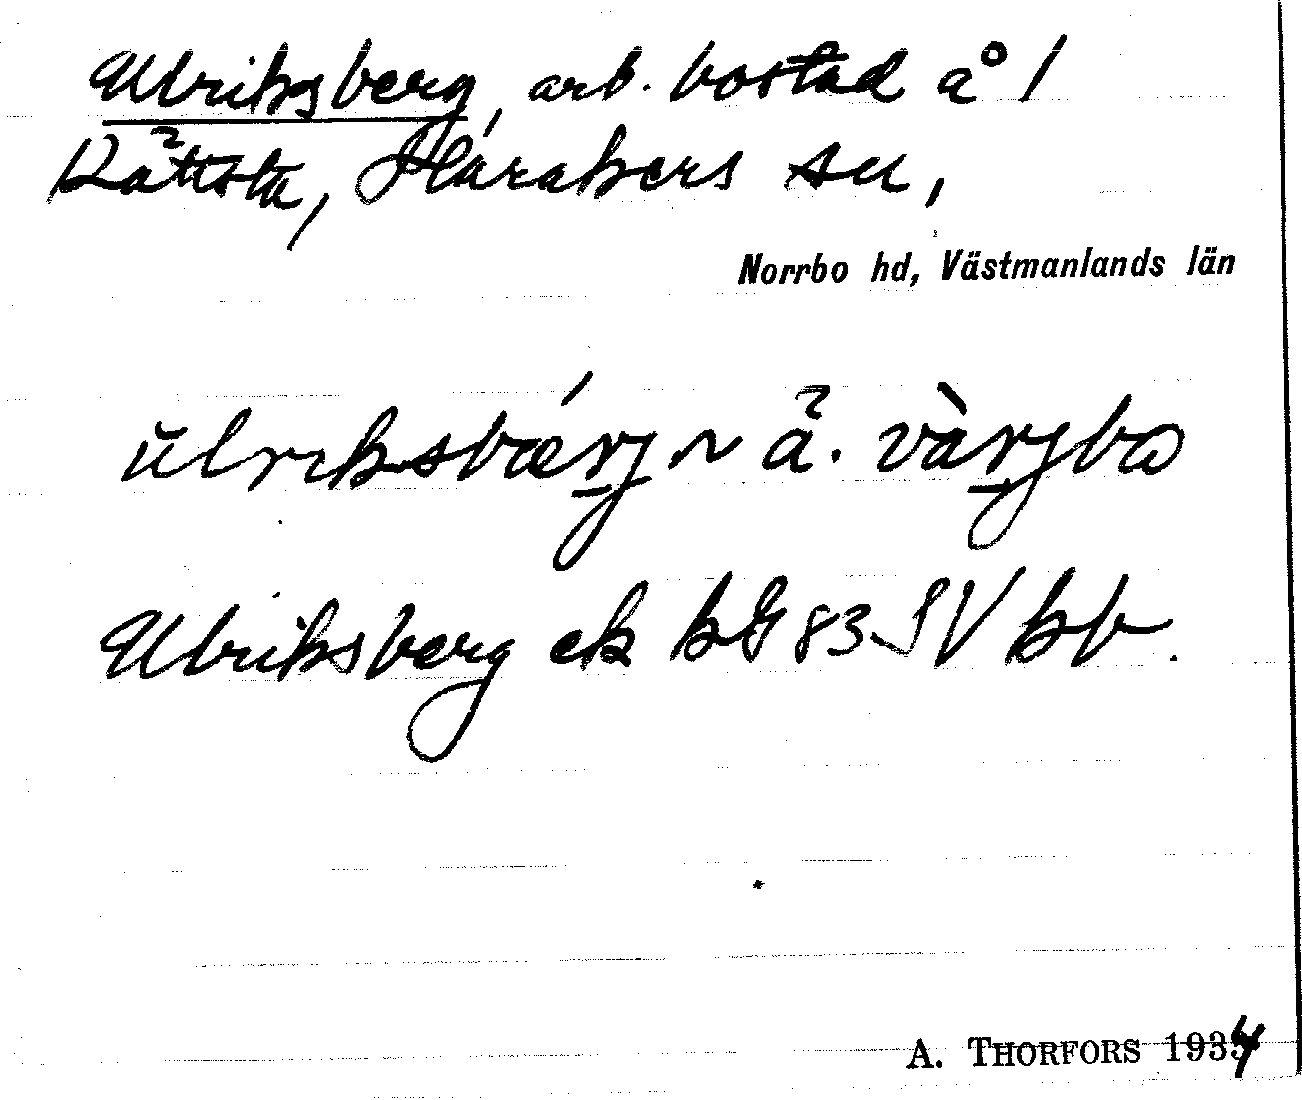 Ulriksberg, arb. bostad å 1
Rättsta, Harakers sn,
Norrbo hd, Västmanlands län
ŭlriksbǽrj ~ å. vàrjbo
Ulriksberg ek bG 83 SV kb.
A. THORFORS 1934